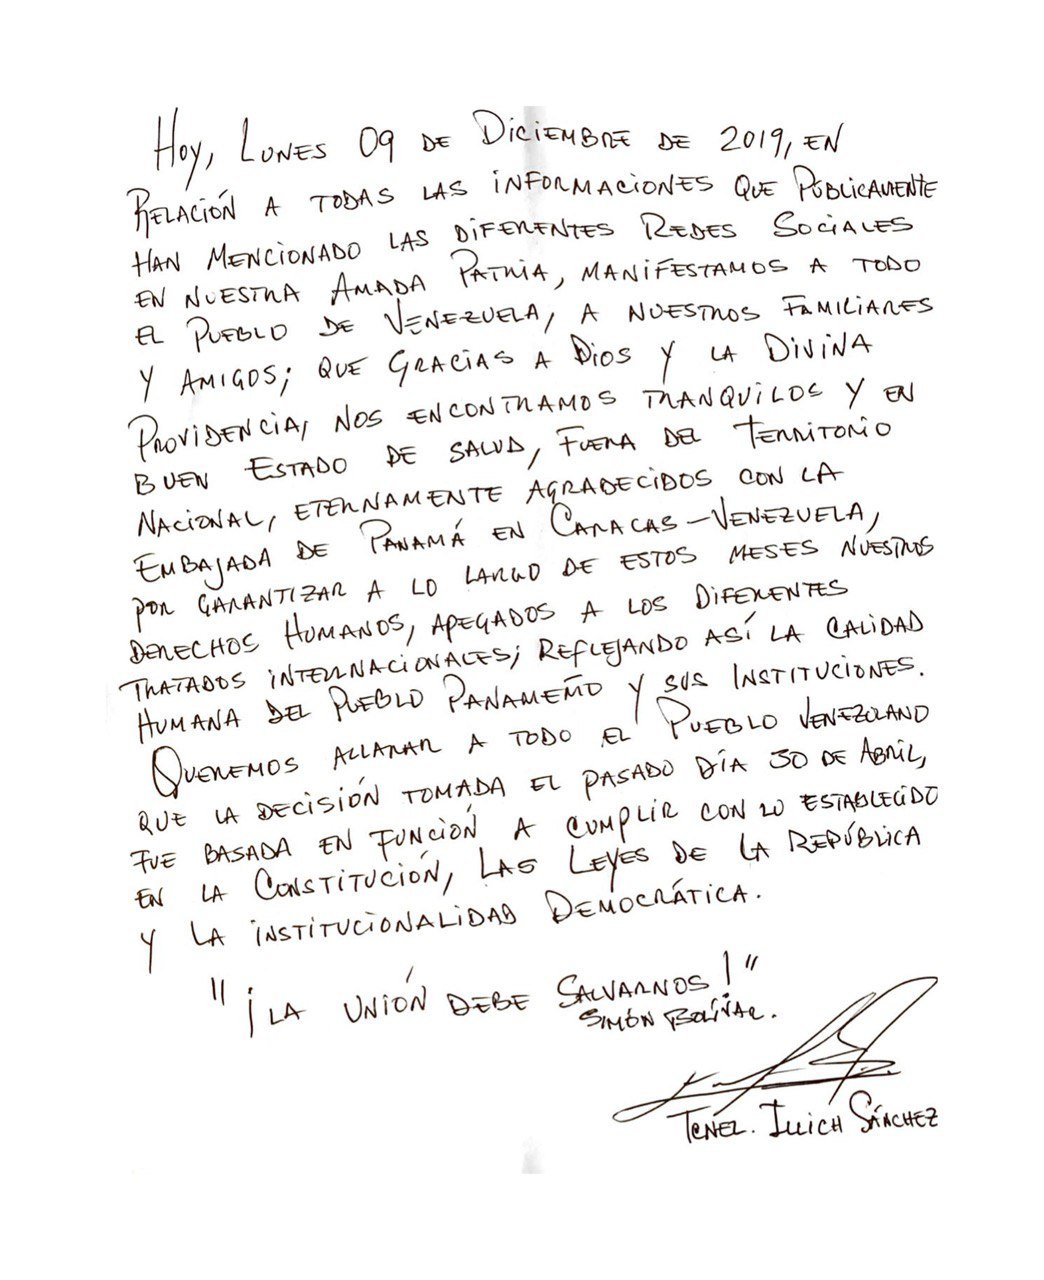 Hoy, Lunes 09 de Diciembre de 2019, en
Relación a todas las informaciones que públicamente
han mencionado las diferentes Redes Sociales
en nuestra Amada Patria, manifestamos a todo
el Pueblo de Venezuela, a nuestros familiares
y amigos; que Gracias a Dios y la Divina
Providencia, nos encontramos tranquilos y en
buen estado de salud, fuera del territorio
nacional, eternamente agradecidos con la
Embajada de Panamá en Caracas-Venezuela,
por garantizar a lo largo de estos meses nuestros
derechos humanos, apegados a los diferentes
tratados internacionales; reflejando así la calidad
humana del Pueblo Panameño y sus Instituciones.
Queremos allanar a todo el Pueblo Venezolano
que la decisión tomada el pasado día 30 de Abril,
fue basada en función a cumplir con lo establecido
en la Constitución, las Leyes de la República
y la institucionalidad Democrática.
"¡La unión debe salvarnos!"
Simón Bolívar.
Tcnel. Illich Sánchez